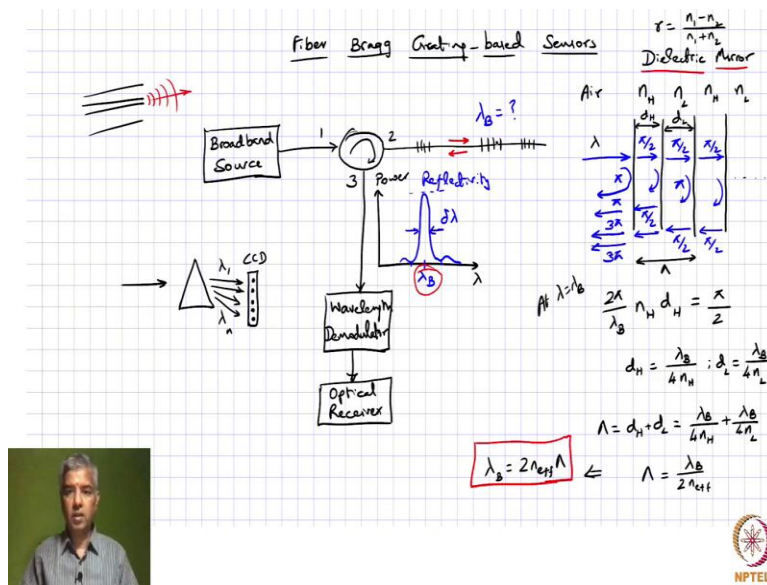 Fiber Bragg Grating-based Sensors
r = n₁-n₂ / n₁+n₂
Dielectric Mirror
Air n_H n_L n_H n_L
d_H d_L
λ
π/2 π/2 π/2
π π
π π/2
3π
3π π/2 π/2
.....
Λ
Broadband Source
1 2
3
λ_B = ?
Power Reflectivity
δλ
λ_B λ
CCD
λ₁
λ_n
Wavelength Demodulator
Optical Receiver
At λ=λ_B 2π/λ_B n_H d_H = π/2
d_H = λ_B/4n_H ; d_L = λ_B/4n_L
Λ = d_H + d_L = λ_B/4n_H + λ_B/4n_L
λ_B = 2n_eff Λ ⇐ Λ = λ_B/2n_eff
NPTEL